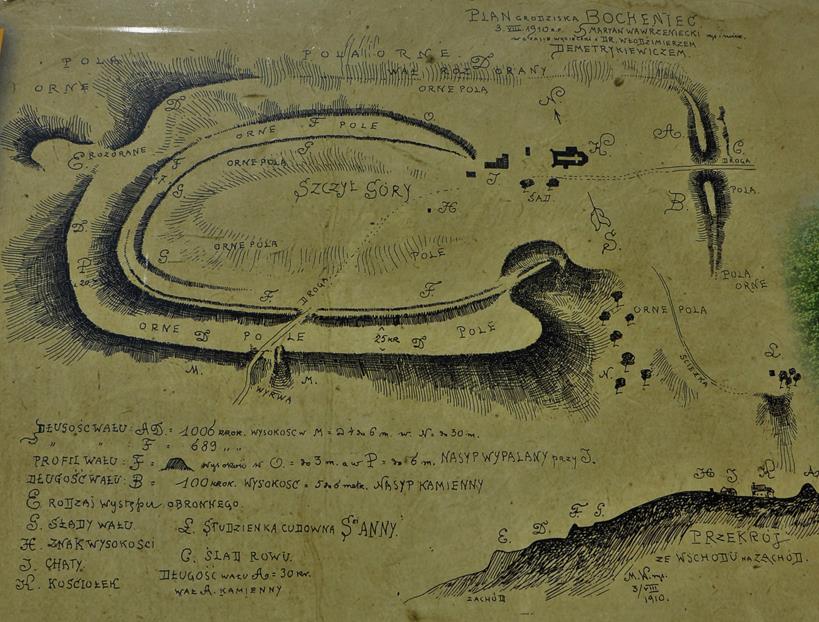 PLAN GRODZISKA BOCHENIEC
3. VIII. 1910 r. MARYAN WAWRZENIECKI
DR. WŁODZIMIERZEM
DEMETRYKIEWICZEM.
POLA ORNE. D
WAŁ ROZORANY
ORNE POLA
POLA
ORNE
D
N
O.
ORNE F POLE
G
A.
C.
DROGA
E. ROZORANE
F
G
ORNE POLA
J
K
SAD
SZCZYT GÓRY
H
B.
POLA.
S.
D
ORNE POLA
POLE
G
POLA
ORNE
F
DROGA
F.
ORNE POLA
ORNE D POLE
25 KR
D
POLE
ŚCIEŻKA
M.
M.
WYRWA
N.
Ł
DŁUGOŚĆ WAŁU: AD. = 1006 KROK. WYSOKOŚĆ W M = 2 + do 6 m. w. N = do 30 m.
" " F = 689 " "
PROFIL WAŁU: F = Wysokość w O. = do 3 m. a w P = do 6 m. NASYP WYPALANY przy J.
DŁUGOŚĆ WAŁU: B = 100 KROK. WYSOKOŚĆ = 5 do 6 metr. NASYP KAMIENNY
E RODZAJ WYSTĘPU OBRONNEGO.
G. ŚLADY WAŁU.
Ł. STUDZIENKA CUDOWNA Ś. ANNY.
H. ZNAK WYSOKOŚCI
C. ŚLAD ROWU.
J. CHATY
DŁUGOŚĆ WAŁU A = 30 KR.
K. KOŚCIOŁEK
WAŁ A. KAMIENNY
H J K A
E. D. F G.
PRZEKRÓJ
ZE WSCHODU NA ZACHÓD.
ZACHÓD
M. W.
3/VIII
1910.